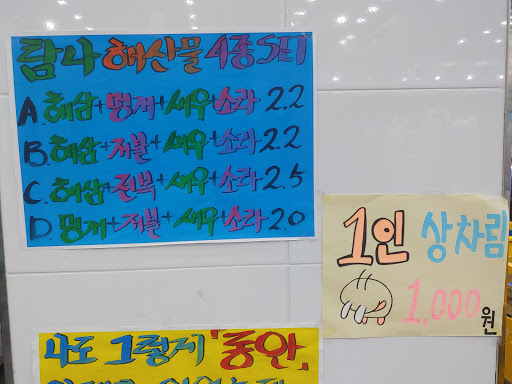 탐나 해산물 4종 SET
A. 해삼+멍게+새우+소라 2.2
B. 해삼+저불+새우+소라 2.2
C. 해삼+전복+새우+소라 2.5
D. 멍게+저불+새우+소라 2.0
1인 상차림
1,000원
나도 그렇게 "동안"